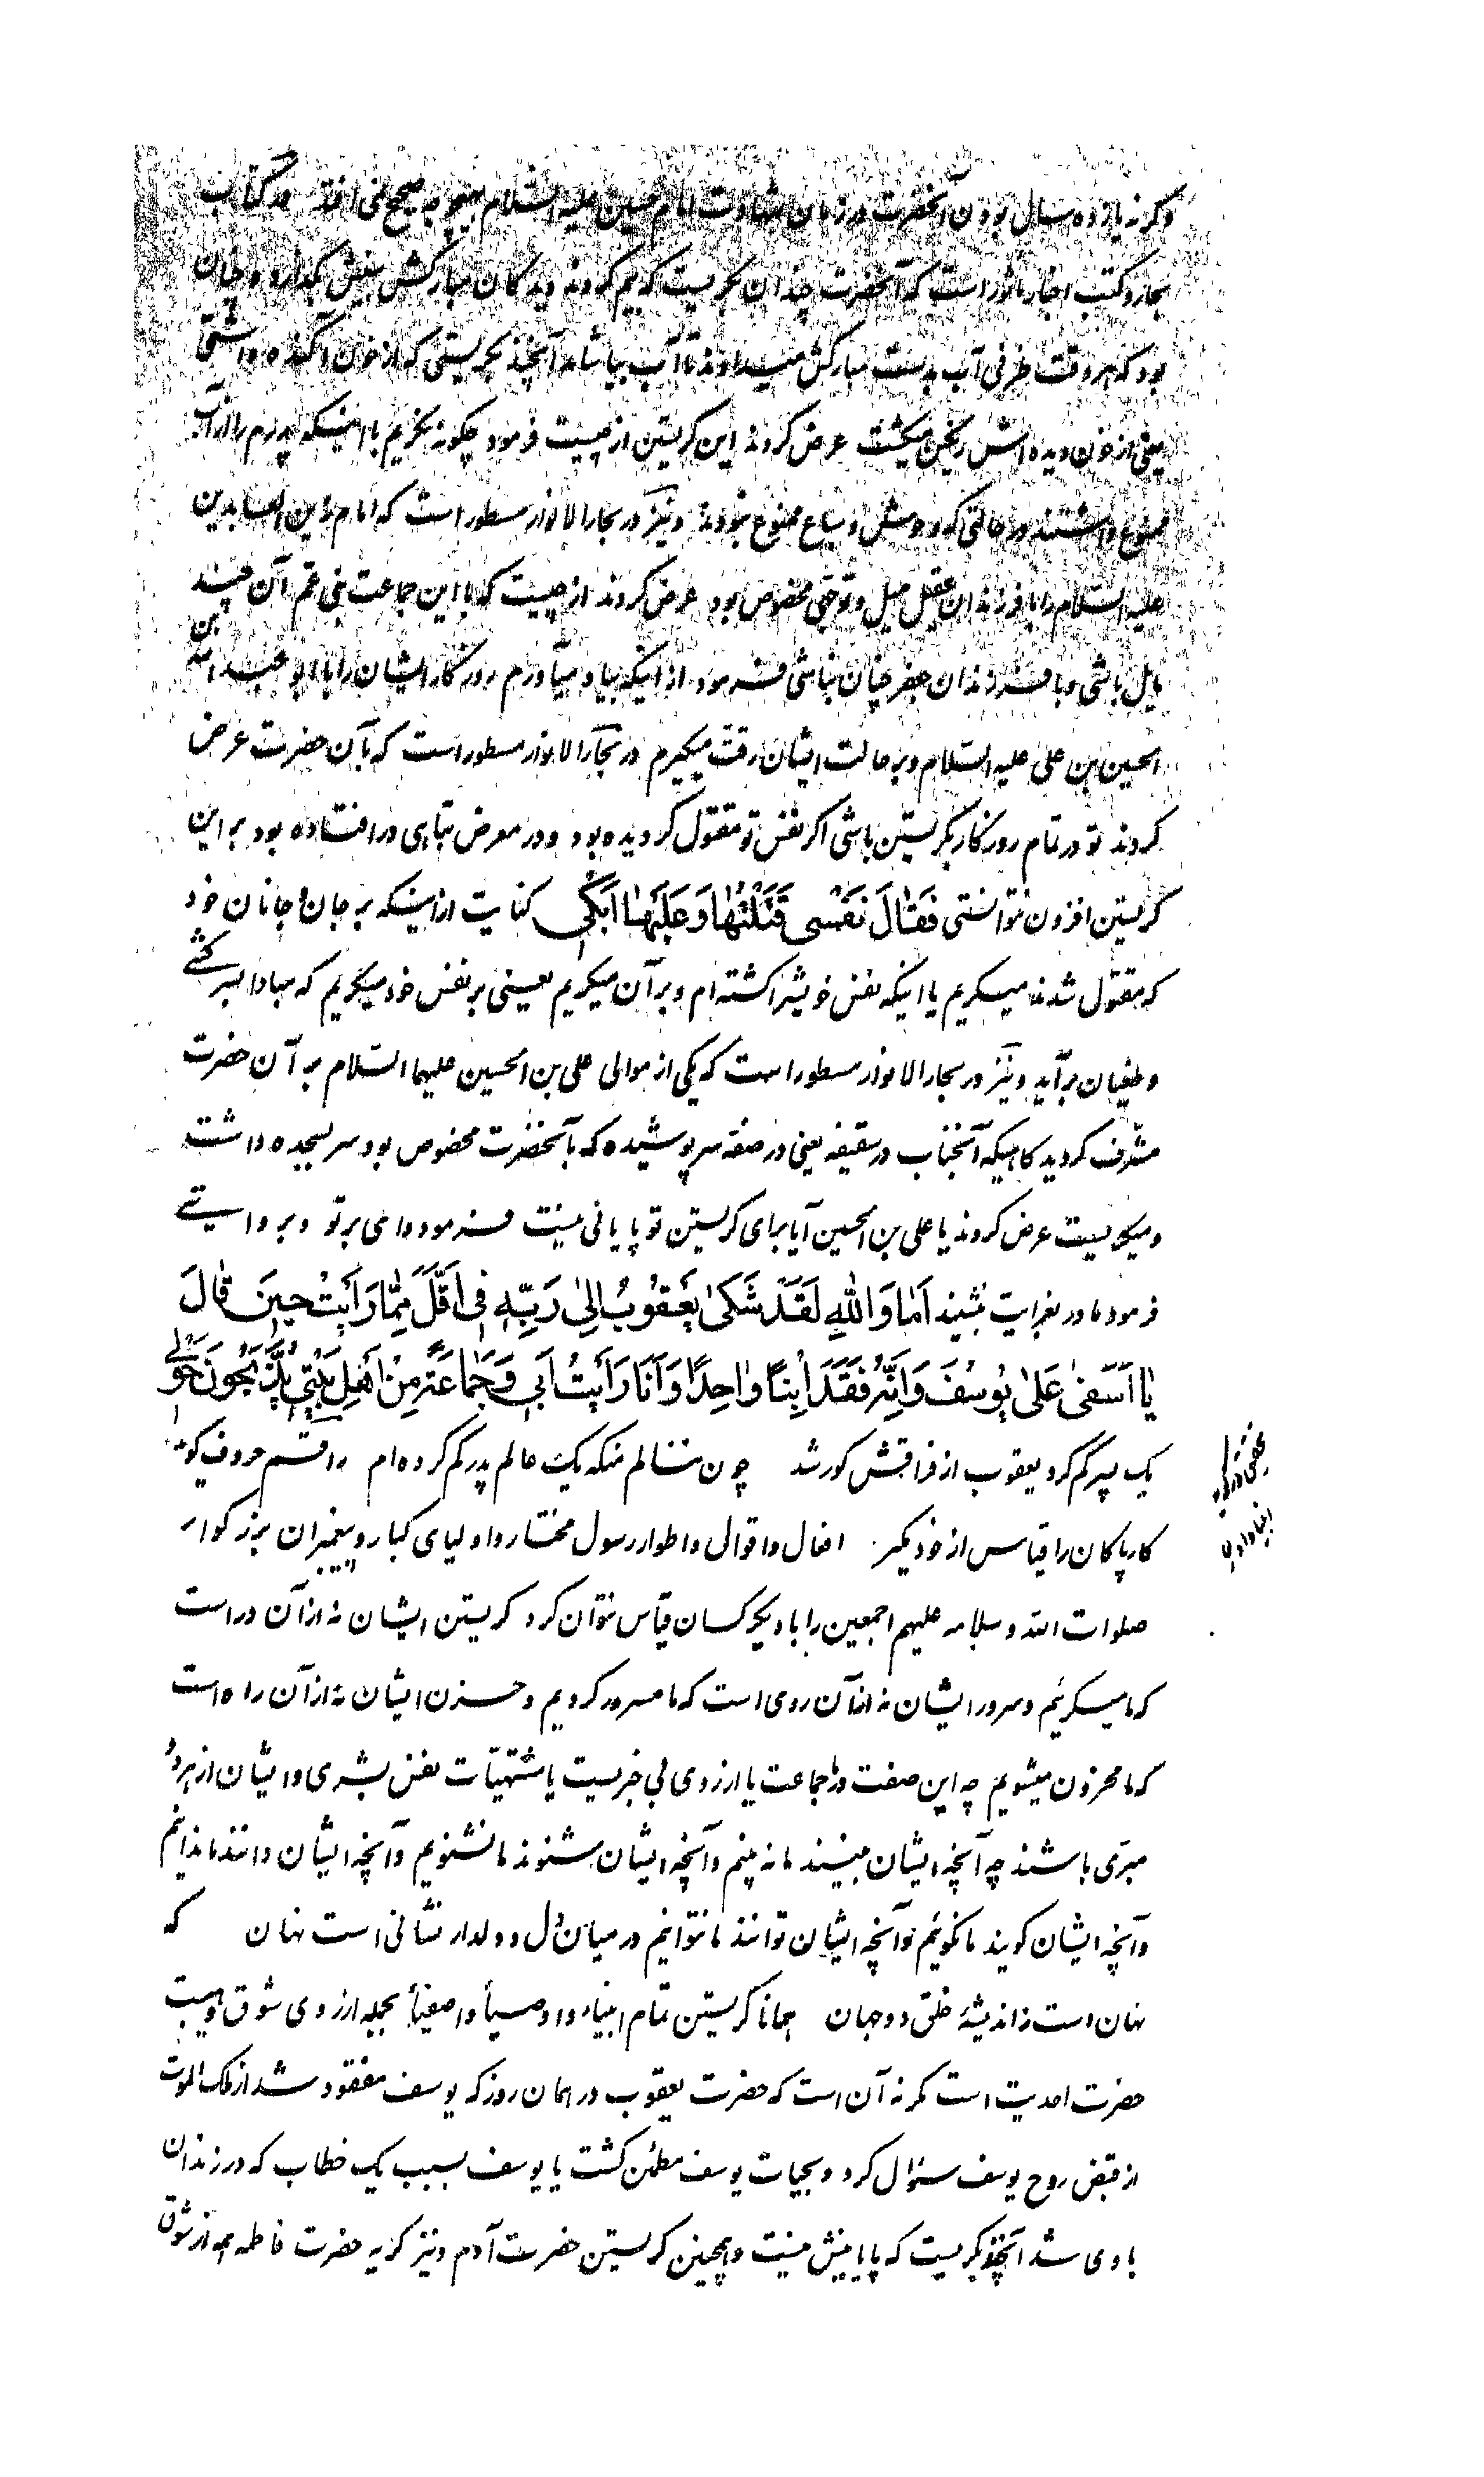 وگرنه یازده سال بودن آنحضرت در زمان شهادت امام حسین علیه السّلام بهیچوجه صحیح نمی افتد در کتاب
بحار و کتب اخبار ماثور است که آنحضرت چندان بگریست که بیم کردند دیدگان مبارکش
بود که هر وقت ظرفی آب بدست مبارکش میدادند تا آب بیاشامد آنچند بگریستی که از خون آکنده داشتی
یعنی از خون دیده اش رنگین میگشت عرض کردند این گریستن از چیست فرمود چگونه نگریم با اینکه پدرم را از آب
ممنوع داشتند در حالتی که وحوش و سباع ممنوع نبودند ونیز در بحار الانوار مسطور است که امام زین العابدین
علیه السّلام را با فرزندان عقیل میل و توجّهی مخصوص بود عرض کردند از چیست که با این جماعت بنی عم آن چند
مایل باشی و با فرزندان جعفر چنان نباشی فرمود از اینکه بیاد میآورم روزگار ایشان را با ابو عبد الله
بن
الحسین بن علی علیه السّلام و بر حالت ایشان رقّت میگیرم در بحار الانوار مسطور است که بآن حضرت عرض
کردند تو در تمام روزگار بگریستن باشی اگر نفس تو مقتول گردیده بود و در معرض تباهی در افتاده بود بر این
گریستن افزون نتوانستی فَقٰالَ نَفْسی قَتَلْتُهٰا وَ عَلَیْهٰا اَبْکی کنایت از اینکه بر جان و جانان خود
که مقتول شدند میگریم یا اینکه نفس خویش را کشته ام و بر آن میگریم یعنی بر نفس خود میگریم که مبادا بسرکشی
و طغیان بر آید ونیز در بحار الانوار مسطور است که یکی از موالی علی بن الحسین علیهما السّلام بر آن حضرت
مشرّف گردید گاهیکه آنجناب در سقیفه یعنی در صفه سر پوشیده که بآنحضرت مخصوص بود سر بسجده داشت
و میگریست عرض کردند یا علی بن الحسین آیا برای گریستن تو پایانی نیست فرمود وای بر تو و بروایتی
فرمود مادر بعزایت نشیند اَمٰا وَاللهِ لَقَدْ شَکیٰ یَعْقُوبُ اِلیٰ رَبِّهِ فی اَقَلَّ مِمّٰا رَاَیْتَ حینَ قٰالَ
یٰا اَسَفیٰ عَلیٰ یُوسُفَ وَ اِنَّهُ فَقَدَ اِبْنًا وٰاحِدًا وَ اَنَا رَاَیْتُ اَبی وَ جَمٰاعَةً مِنْ اَهْلِ بَیْتی یُذْبَحُونَ حَوْلی
یک پسر گم کرد یعقوب از فراقش کور شد چون ننالم منکه یک عالم پدر گم کرده ام راقم حروف گوید
کار پاکان را قیاس از خود مگیر افعال و اقوال و اطوار رسول مختار و اولیای کبار و پیغمبران بزرگوار
صلوات الله وسلامه علیهم اجمعین را با دیگر کسان قیاس نتوان کرد گریستن ایشان نه از آن در است
که ما میگرئیم و سرور ایشان نه از آن روی است که ما مسرور گردیم و حزن ایشان نه از آن راه است
که ما محزون میشویم چه این صفت در ما جماعت یا از روی بی خبریست یا مشتهیّات نفس بشری و ایشان از هر دو
مبرّی باشند چه آنچه ایشان بینند ما نه بینیم و آنچه ایشان بشنوند ما نشنویم و آنچه ایشان دانند ما ندانیم
و آنچه ایشان گویند ما نگوئیم و آنچه ایشان توانند ما نتوانیم در میان دل و دلدار نشانی است نهان که
نهان است ز اندیشهٔ خلق دو جهان همانا گریستن تمام انبیاء و اوصیأ و اصفیأ بجمله از روی شوق و هیبت
حضرت احدیت است مگر نه آن است که حضرت یعقوب در همان روز که یوسف مفقود شد از ملک الموت
از قبض روح یوسف سئوال کرد و بحیات یوسف مطمئن گشت یا یوسف بسبب یک خطاب که در زندان
با وی شد آنچند بگریست که پایانیش نیست و همچنین گریستن حضرت آدم ونیز گریه حضرت فاطمه همه از شوق